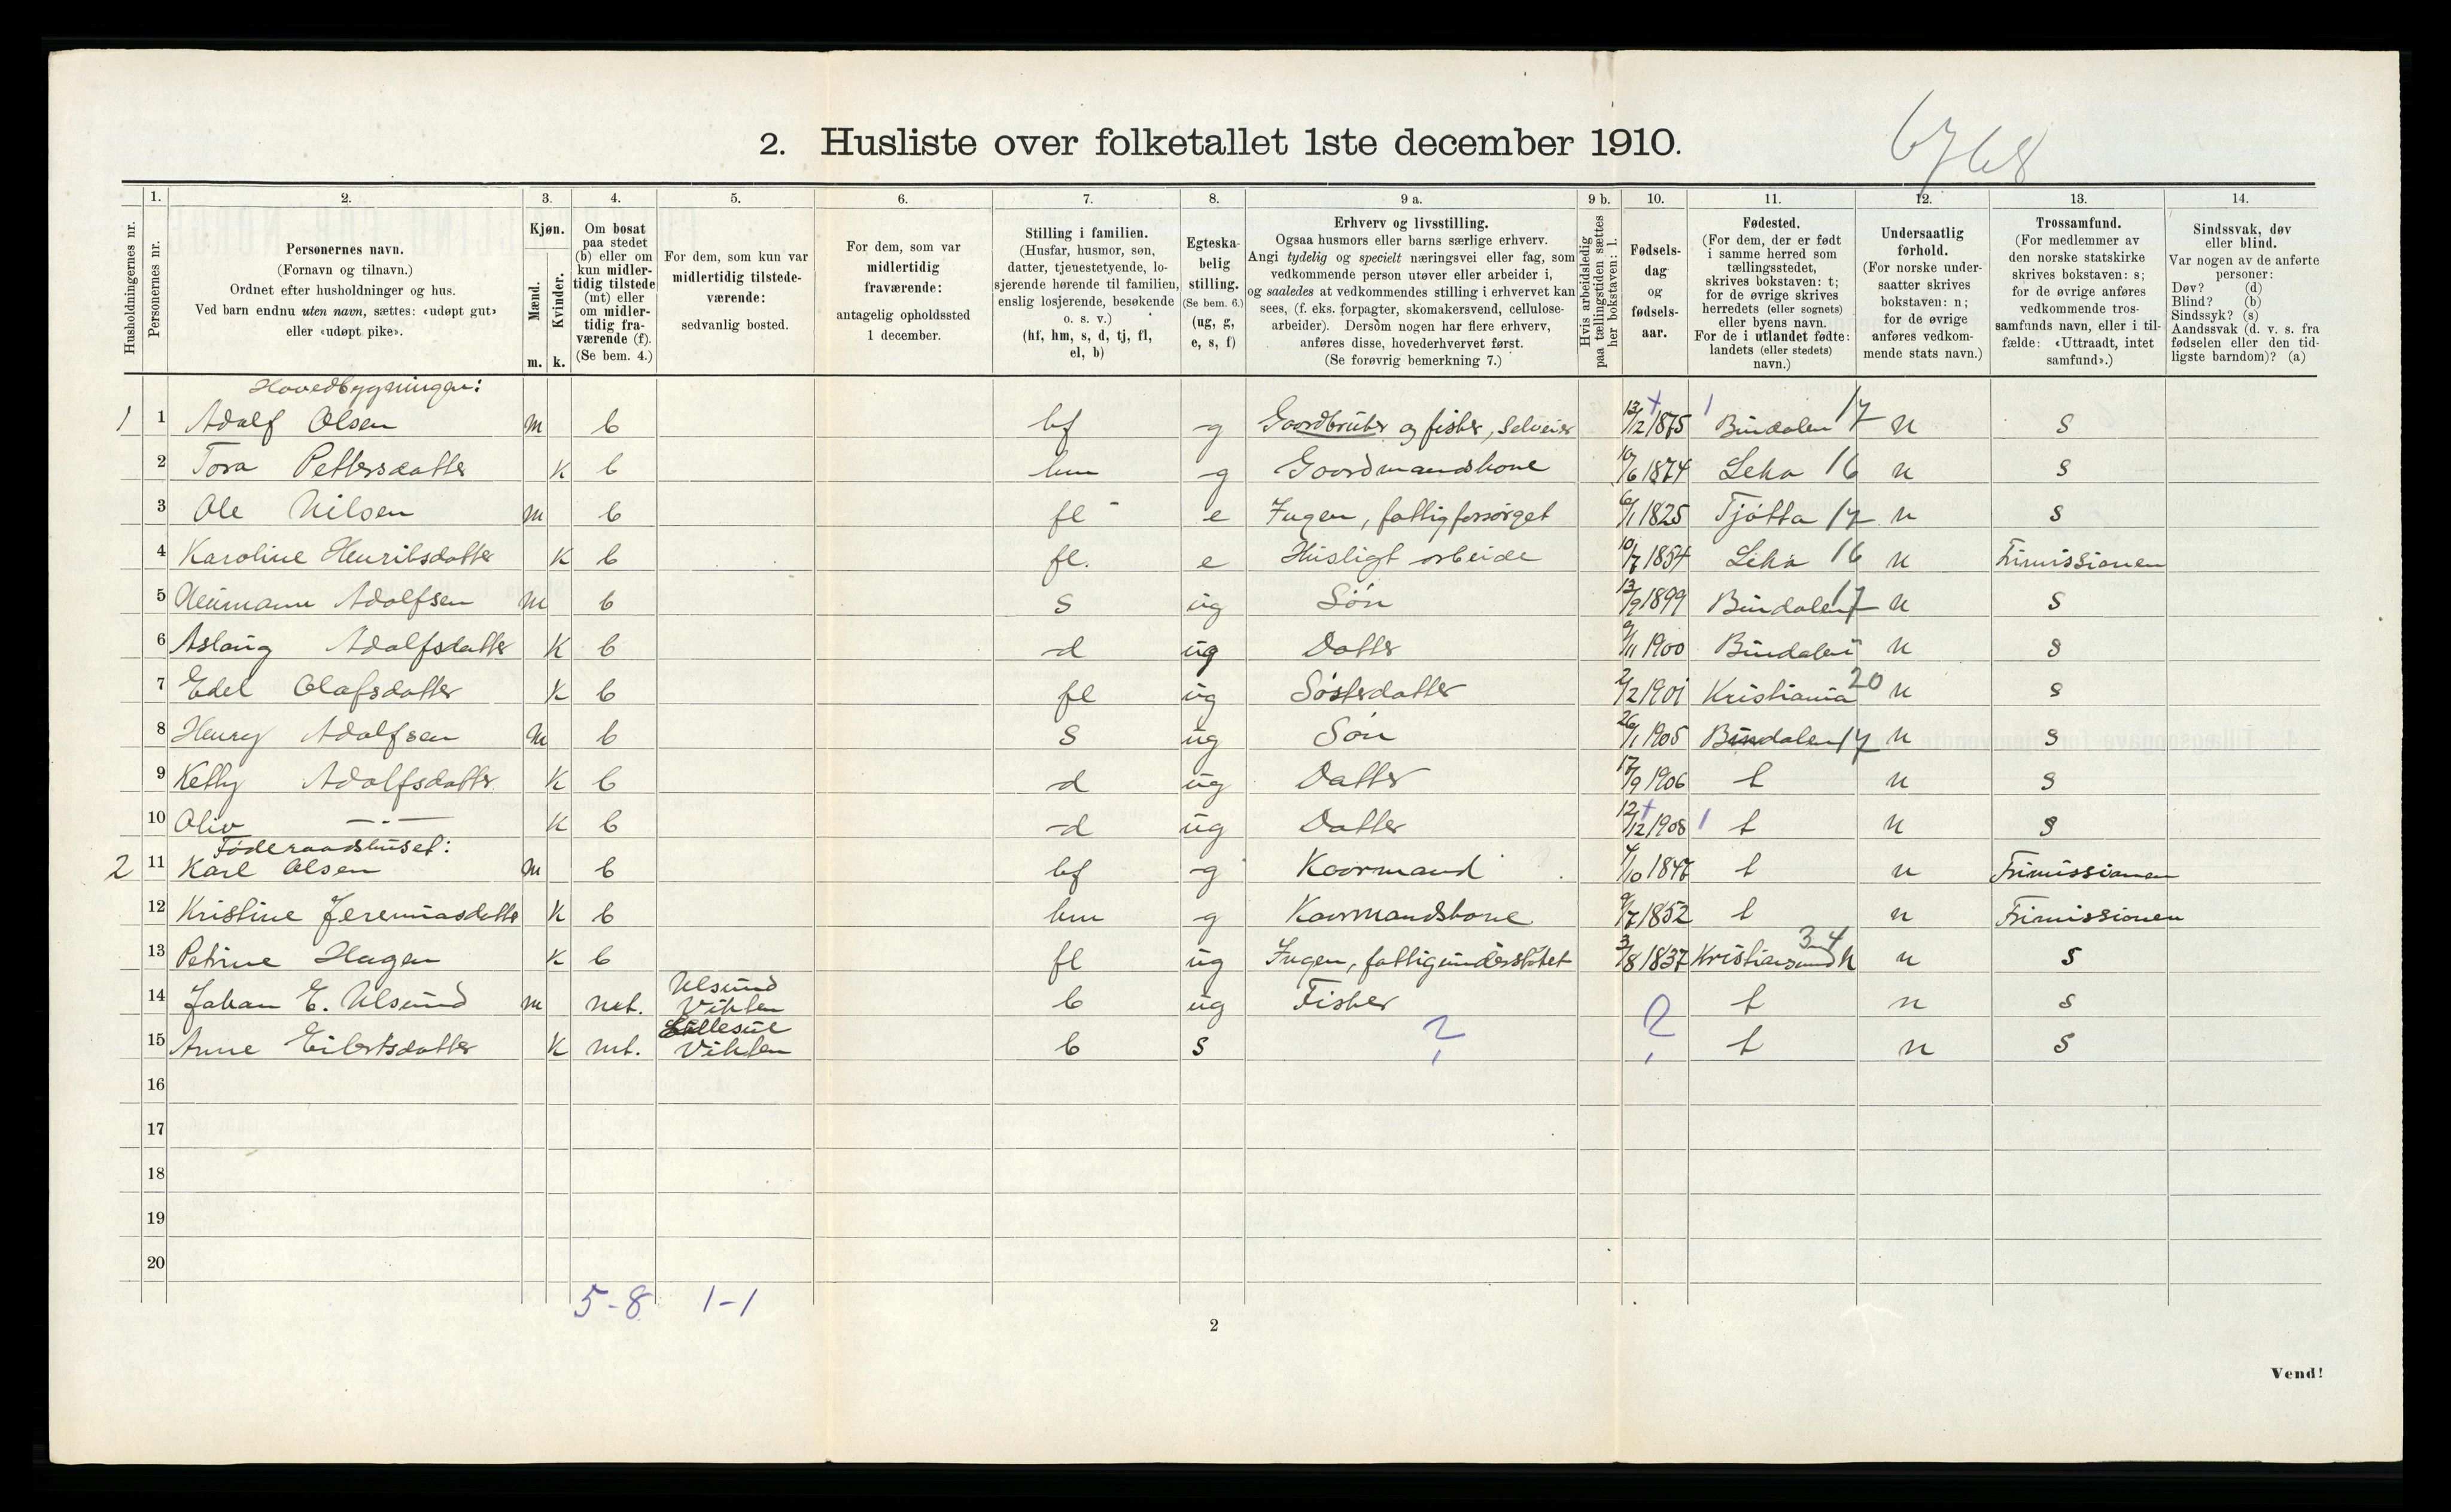 6768
2. Husliste over folketallet 1ste december 1910.
Husholdningernes nr.
1. Personernes nr.
2. Personernes navn. (Fornavn og tilnavn.) Ordnet efter husholdninger og hus. Ved barn endnu uten navn, sættes: «udøpt gut» eller «udøpt pike».
3. Kjøn. Mænd. m. Kvinder. k.
4. Om bosat paa stedet (b) eller om kun midlertidig tilstede (mt) eller om midlertidig fraværende (f). (Se bem. 4.)
5. For dem, som kun var midlertidig tilstedeværende: sedvanlig bosted.
6. For dem, som var midlertidig fraværende: antagelig opholdssted 1 december.
7. Stilling i familien. (Husfar, husmor, søn, datter, tjenestetyende, losjerende hørende til familien, enslig losjerende, besøkende o. s. v.) (hf, hm, s, d, tj, fl, el, b)
8. Egteskabelig stilling. (Se bem. 6.) (ug, g, e, s, f)
9 a. Erhverv og livsstilling. Ogsaa husmors eller barns særlige erhverv. Angi tydelig og specielt næringsvei eller fag, som vedkommende person utøver eller arbeider i, og saaledes at vedkommendes stilling i erhvervet kan sees, (f. eks. forpagter, skomakersvend, cellulosearbeider). Dersom nogen har flere erhverv, anføres disse, hovederhvervet først. (Se forøvrig bemerkning 7.)
9 b. Hvis arbeidsledig paa tællingstiden sættes her bokstaven: l.
10. Fødselsdag og fødselsaar.
11. Fødested. (For dem, der er født i samme herred som tællingsstedet, skrives bokstaven: t; for de øvrige skrives herredets (eller sognets) eller byens navn. For de i utlandet fødte: landets (eller stedets) navn.)
12. Undersaatlig forhold. (For norske undersaatter skrives bokstaven: n; for de øvrige anføres vedkommende stats navn.)
13. Trossamfund. (For medlemmer av den norske statskirke skrives bokstaven: s; for de øvrige anføres vedkommende trossamfunds navn, eller i tilfælde: «Uttraadt, intet samfund».)
14. Sindssvak, døv eller blind. Var nogen av de anførte personer: Døv? (d) Blind? (b) Sindssyk? (s) Aandssvak (d. v. s. fra fødselen eller den tidligste barndom)? (a)
Hovedbygningen:
1 1 Adolf Olsen m b hf g Gaardbruker og fisker, Selveier 13/12 1875 1 Bindalen 17 n s
2 Tora Pettersdatter K b hm g Gaardmandskone 10/6 1874 Leka 16 n s
3 Ole Nilsen m b fl e Ingen, fattigforsørget 6/1 1825 Tjøtta 17 n s
4 Karoline Henriksdatter K b fl. e Husligt arbeide 10/7 1854 Leka 16 n Frimissionen
5 Neumann Adolfsen m b s ug Søn 13/9 1899 Bindalen 17 n s
6 Aslaug Adolfsdatter K b d ug Datter 9/11 1900 Bindalen n s
7 Edel Olafsdatter K b fl ug Søsterdatter 2/2 1901 Kristiania 20 n s
8 Henry Adolfsen m b s ug Søn 26/1 1905 Bindalen 17 n s
9 Ketty Adolfsdatter K b d ug Datter 17/9 1906 t n s
10 Oliv —"— K b d ug Datter 12/12 1908 1 t n s
Føderaadshuset:
2 11 Karl Olsen m b hf g Kaarmand 4/10 1847 t n Frimissionen
12 Kristine Jeremiasdatter K b hm g Kaarmandskone 9/7 1852 t n Frimissionen
13 Petrine Hagen K b fl ug Ingen, fattigunderstøttet 3/8 1837 Kristiansund N 34 n s
14 Johan E. Ulsund m mt. Ulsund Vikten b ug Fisker ? t n s
15 Anne Eilertsdatter K mt. Vikten b s ? ? t n s
16
17
18
19
20
5-8 1-1
2
Vend!